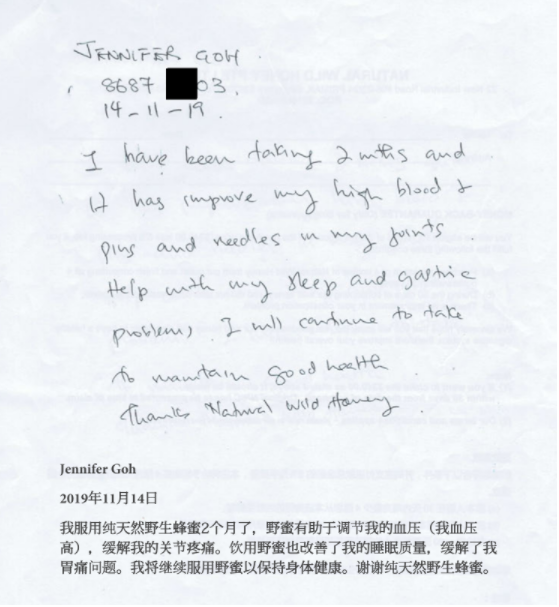 JENNIFER GOH
8687 03.
14-11-19.
I have been taking 2 mths and
it has improve my high blood &
pins and needles in my joints
Help with my sleep and gastric
problem, I will continue to take
to maintain good health
Thanks Natural Wild Honey
Jennifer Goh
2019年11月14日
我服用纯天然野生蜂蜜2个月了，野蜜有助于调节我的血压（我血压
高），缓解我的关节疼痛。饮用野蜜也改善了我的睡眠质量，缓解了我
胃痛问题。我将继续服用野蜜以保持身体健康。谢谢纯天然野生蜂蜜。